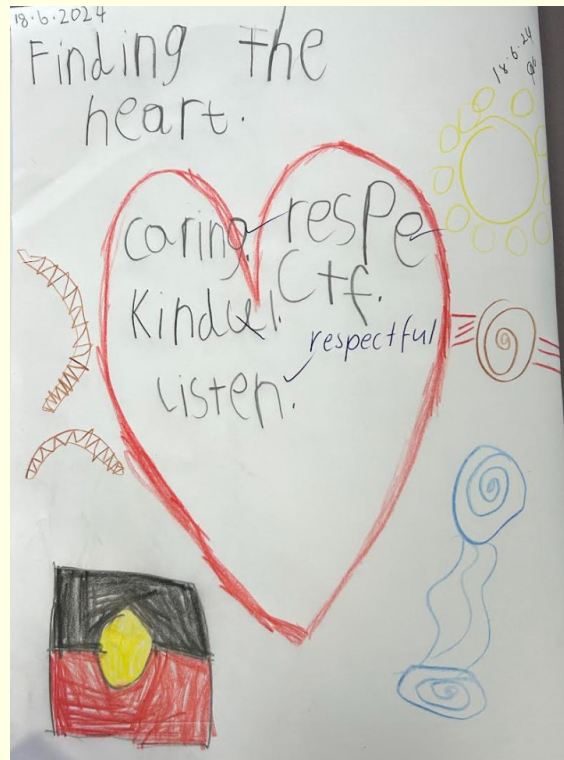 18.6.2024
Finding the
heart.
18.6.24
caring. respe
ctf.
Kind
respectful
listen.